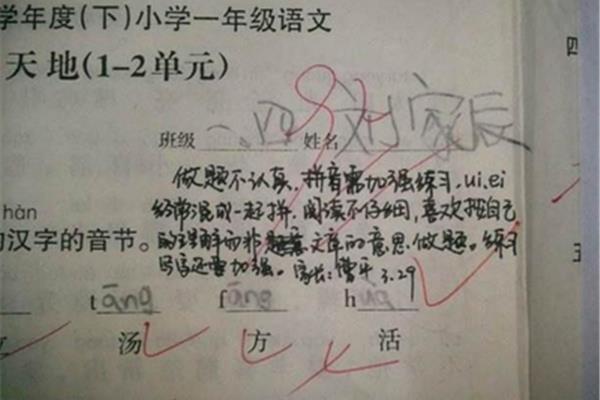 学年度(下)小学一年级语文
天地(1-2单元)
班级 一.四 姓名 刘家辰
做题不认真,拼音需加强练习.ui.ei
经常混成一起拼.阅读不仔细,喜欢按自己
的理解而非文章的意思做题。练习
写字还需加强。家长: 3.29
hàn
汉字的音节。
tāng fāng h
汤 方 活
四
五